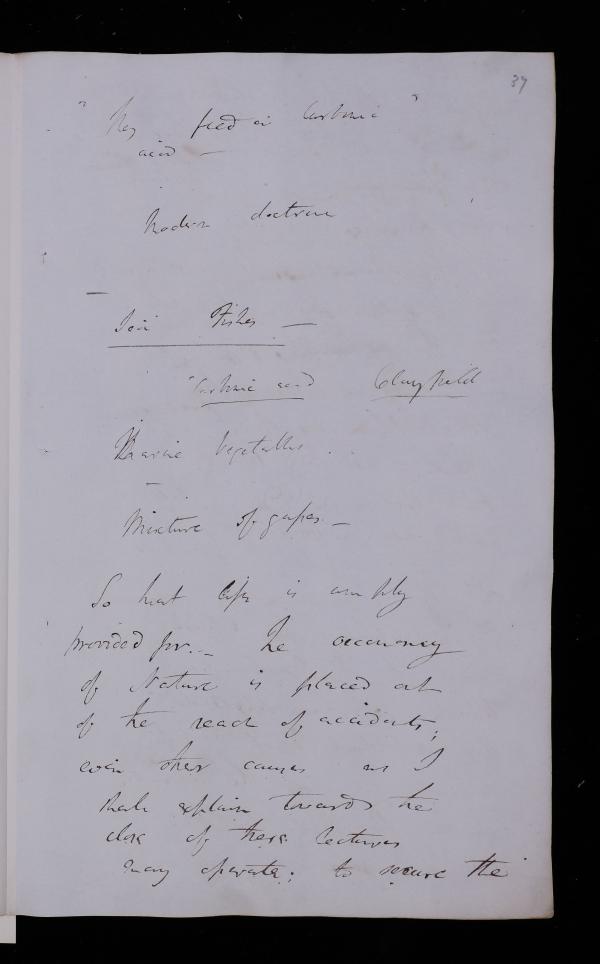 37
" They feed on Carbonic "
acid —
Modern doctrine
—
Sea Fishes —
"Carbonic acid Clayfield
Marine Vegetables .
—
Mixture of gases. —
So that life is amply
provided for. — The œconomy
of Nature is placed out
of the reach of accidents;
even other causes as I
shall explain towards the
close of these lectures
may operate; to secure the